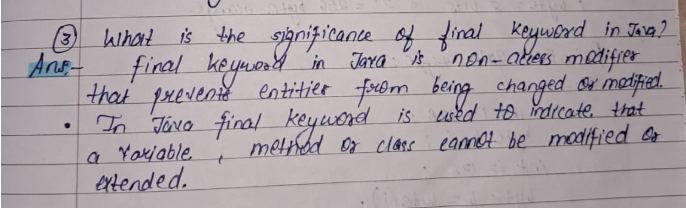 ③ What is the significance of final keyword in Java?
Ans:- final keyword in Java is non-access modifier
that prevents entities from being changed or modified.
• In Java final keyword is used to indicate that
a variable, method or class cannot be modified or
extended.